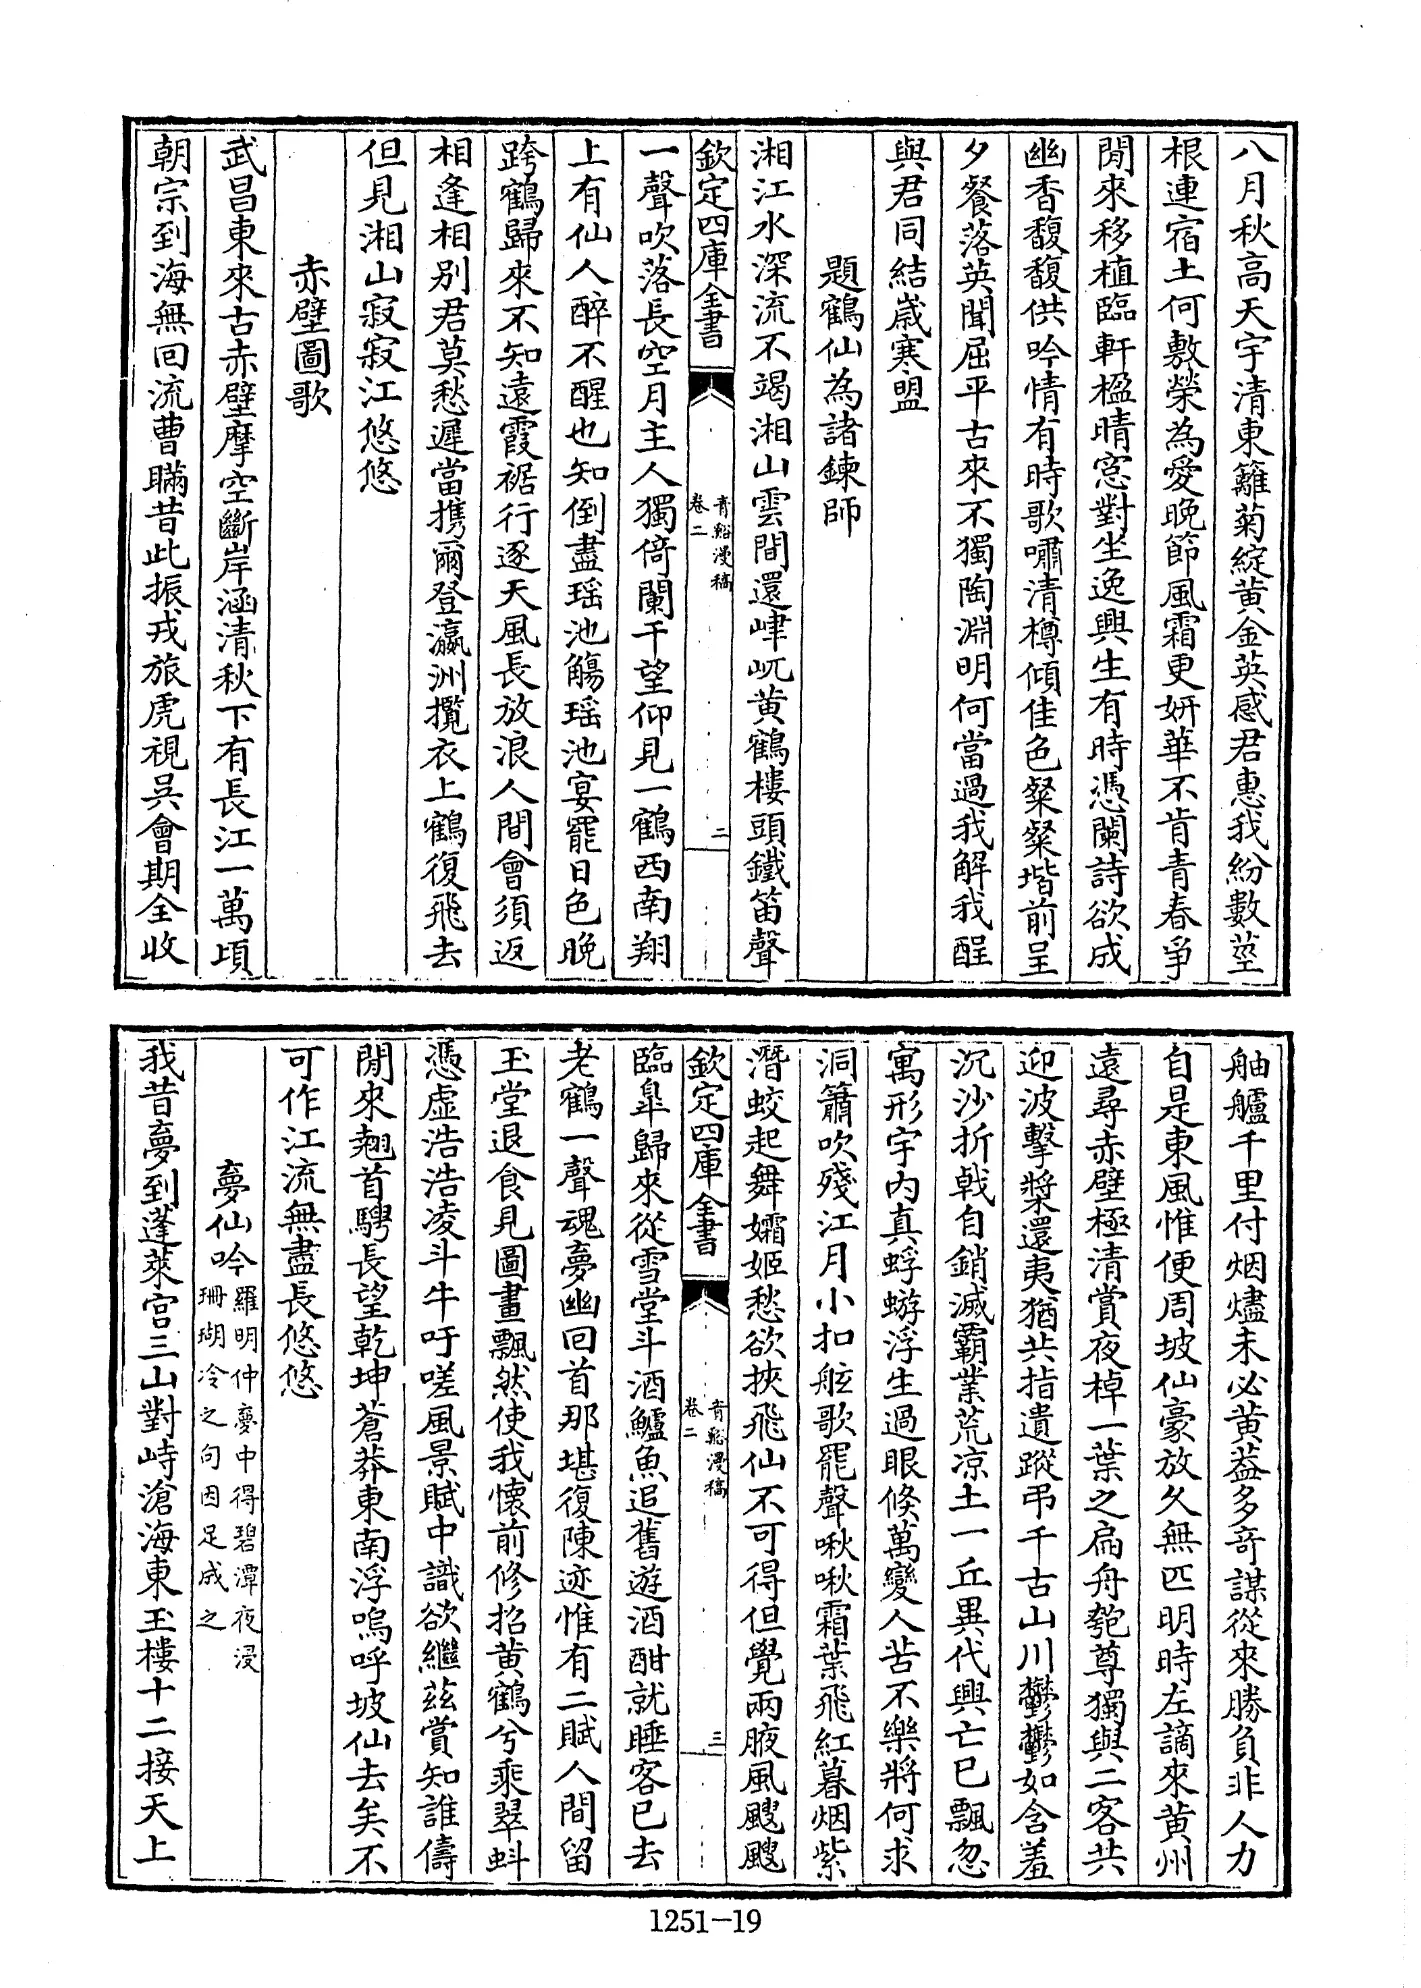 八月秋高天宇清東籬菊綻黄金英感君惠我紛數莖
根連宿土何敷榮為愛晩節風霜更妍華不肯青春爭
閒來移植臨軒楹晴窓對坐逸興生有時憑闌詩欲成
幽香馥馥供吟情有時歌嘯清樽傾佳色粲粲堦前呈
夕餐落英聞屈平古來不獨陶淵明何當過我解我酲
與君同結歳寒盟
題鶴仙為諸鍊師
湘江水深流不竭湘山雲間還峍屼黄鶴樓頭鐵笛聲
欽定四庫全書
青谿漫稿
卷二
二
一聲吹落長空月主人獨倚闌干望仰見一鶴西南翔
上有仙人醉不醒也知倒盡瑶池觴瑶池宴罷日色晩
跨鶴歸來不知遠霞裾行逐天風長放浪人間會須返
相逢相別君莫愁遲當携爾登瀛洲攬衣上鶴復飛去
但見湘山寂寂江悠悠
赤壁圖歌
武昌東來古赤壁摩空斷岸涵清秋下有長江一萬頃
朝宗到海無回流曹瞞昔此振戎旅虎視吳會期全收
舳艫千里付烟燼未必黄葢多竒謀從來勝負非人力
自是東風惟便周坡仙豪放久無匹明時左謫來黄州
遠尋赤壁極清賞夜棹一葉之扁舟匏尊獨與二客共
迎波擊槳還夷猶共指遺蹤弔千古山川鬱鬱如含羞
沉沙折戟自銷滅霸業荒凉土一丘異代興亡已飄忽
寓形宇内真蜉蝣浮生過眼倐萬變人苦不樂將何求
洞簫吹殘江月小扣舷歌罷聲啾啾霜葉飛紅暮烟紫
潛蛟起舞孀姬愁欲挾飛仙不可得但覺兩腋風颼颼
欽定四庫全書
青谿漫稿
卷二
三
臨臯歸來從雪堂斗酒鱸魚追舊遊酒酣就睡客已去
老鶴一聲魂夢幽回首那堪復陳迹惟有二賦人間留
玉堂退食見圖畫飄然使我懷前修招黄鶴兮乘翠虯
憑虚浩浩凌斗牛吁嗟風景賦中識欲繼兹賞知誰儔
閒來翹首騁長望乾坤蒼莽東南浮嗚呼坡仙去矣不
可作江流無盡長悠悠
夢仙吟羅明仲夢中得碧潭夜浸
珊瑚冷之句因足成之
我昔夢到蓬萊宫三山對峙滄海東玉樓十二接天上
1251-19